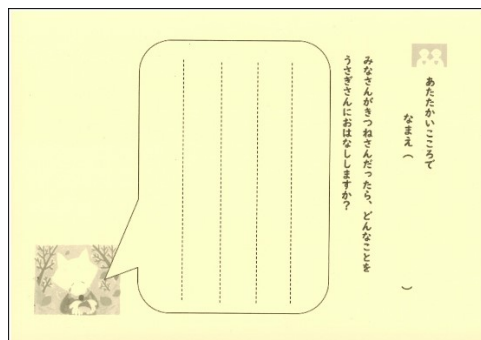 あたたかいこころで
なまえ（　　　　　　）
みなさんがきつねさんだったら、どんなことを
うさぎさんにおはなししますか？